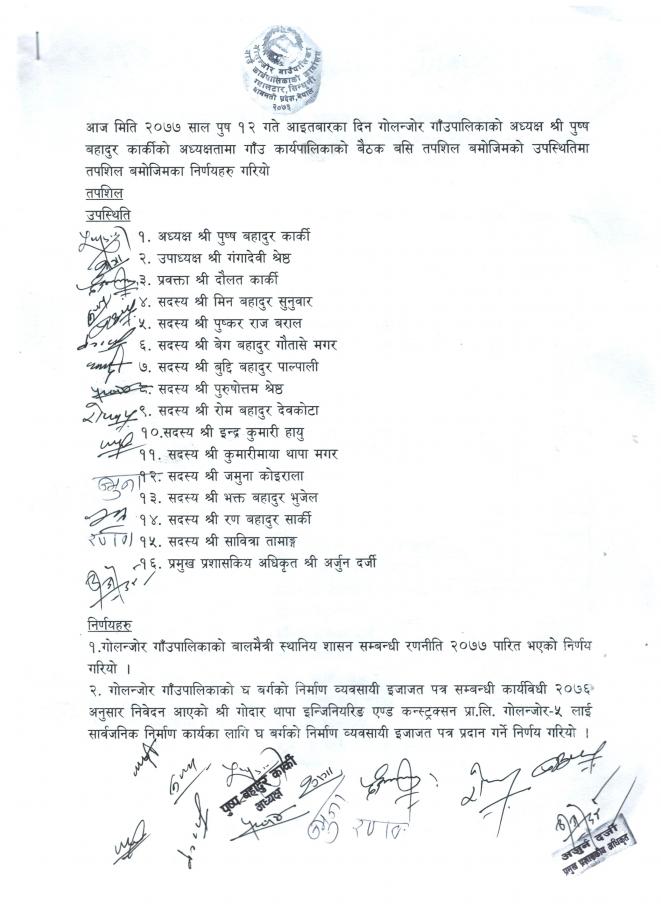 गोलन्जोर गाउँपालिका
गाउँ कार्यपालिकाको कार्यालय
ग्वालटार, सिन्धुली
बागमती प्रदेश, नेपाल
२०७३
आज मिति २०७७ साल पुष १२ गते आइतबारका दिन गोलन्जोर गाँउपालिकाको अध्यक्ष श्री पुष्प
बहादुर कार्कीको अध्यक्षतामा गाँउ कार्यपालिकाको बैठक बसि तपशिल बमोजिमको उपस्थितिमा
तपशिल बमोजिमका निर्णयहरु गरियो
तपशिल
उपस्थिति
१. अध्यक्ष श्री पुष्प बहादुर कार्की
२. उपाध्यक्ष श्री गंगादेवी श्रेष्ठ
३. प्रवक्ता श्री दौलत कार्की
४. सदस्य श्री मिन बहादुर सुनुवार
५. सदस्य श्री पुष्कर राज बराल
६. सदस्य श्री बेग बहादुर गौतासे मगर
७. सदस्य श्री बुद्दि बहादुर पाल्पाली
८. सदस्य श्री पुरुषोत्तम श्रेष्ठ
९. सदस्य श्री रोम बहादुर देवकोटा
१०.सदस्य श्री इन्द्र कुमारी हायु
११. सदस्य श्री कुमारीमाया थापा मगर
१२. सदस्य श्री जमुना कोइराला
१३. सदस्य श्री भक्त बहादुर भुजेल
१४. सदस्य श्री रण बहादुर सार्की
१५. सदस्य श्री सावित्रा तामाङ्ग
१६. प्रमुख प्रशासकिय अधिकृत श्री अर्जुन दर्जी
निर्णयहरु
१.गोलन्जोर गाँउपालिकाको बालमैत्री स्थानिय शासन सम्बन्धी रणनीति २०७७ पारित भएको निर्णय
गरियो ।
२. गोलन्जोर गाँउपालिकाको घ बर्गको निर्माण व्यवसायी इजाजत पत्र सम्बन्धी कार्यविधी २०७६
अनुसार निवेदन आएको श्री गोदार थापा इन्जिनियरिड एण्ड कन्स्ट्रक्सन प्रा.लि. गोलन्जोर-५ लाई
सार्वजनिक निर्माण कार्यका लागि घ बर्गको निर्माण व्यवसायी इजाजत पत्र प्रदान गर्ने निर्णय गरियो ।
पुष्प बहादुर कार्की
अध्यक्ष
अर्जुन दर्जी
प्रमुख प्रशासकीय अधिकृत